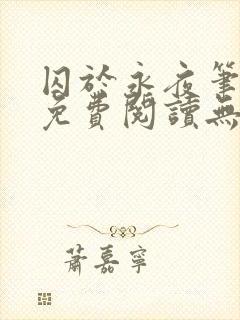 囚於永夜筆
免費閱讀無
蕭嘉寧